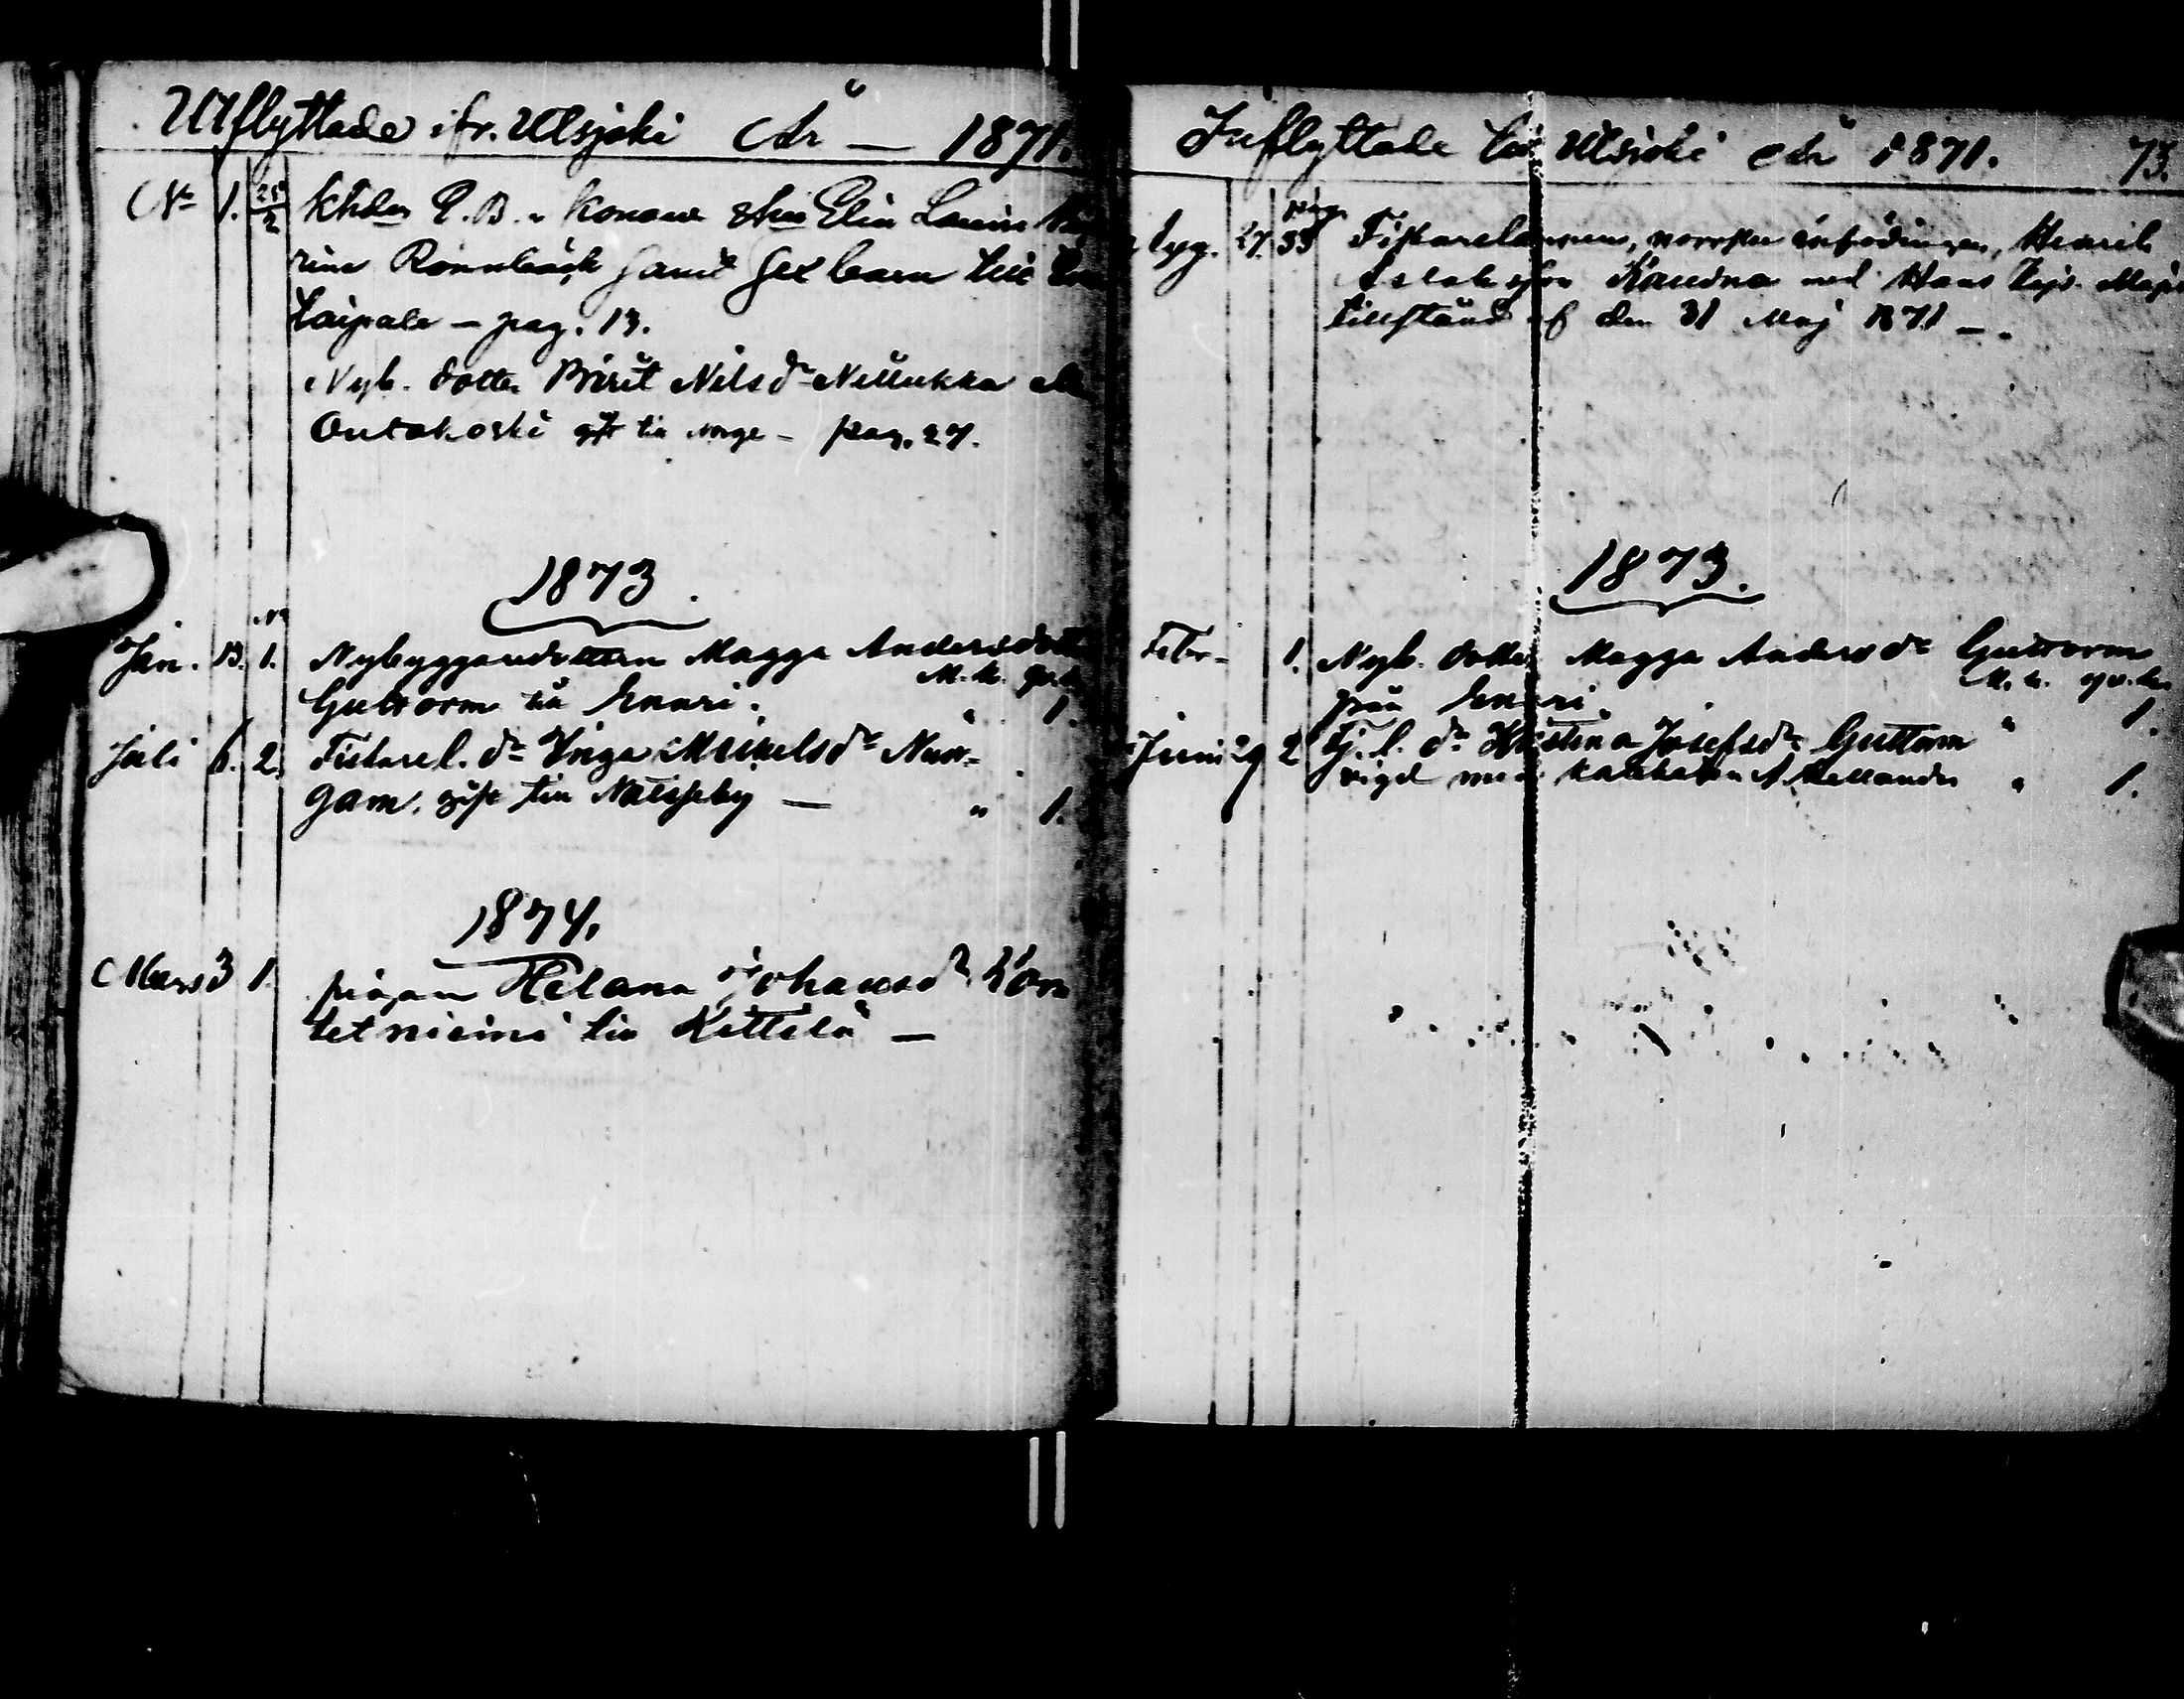 Utflyttade ifr. Utsjoki År — 1871.
No 1. 25/2 Khden E.B. Konow Elin Lovisa
rina Rönnbäck samt sex barn till
Taipale — pag. 13.
Nyb. dotter Birit Nilsdr Nillukka
Outakoski gift till Norge — pag. 27.
1873.
No
Jan. 13. 1. Nybyggaredottren Magga Andersdott
M.k. qv.k.
Guttorm till Enari. " 1.
Juli 6. 2. Fiskarel. dr Inga Mikelsdr Nuor-
gam, gift till Nässeby — " 1.
1874.
Mars 3 1. pigan Helena Johansdr Kor
tetniemi till Kittilä —
Inflyttade till Utsjoki År 1871. 73.
pag.
byg. 27. 33 Fiskarelappen, norrske infödingen, Henrik
Aslaksson Kaudna med Hans Kejs. Maj:s
tillstånd af den 31 Maj 1871 —.
1873.
Febr. 1. Nyb. dotter Magga Andersdr Guttorm
M.k. qv.k.
från Enari. " 1.
Juni 29 2 Fj.l. dr Kristina Josefsdr Guttorm
vigd med kateketen A Hellander " 1.